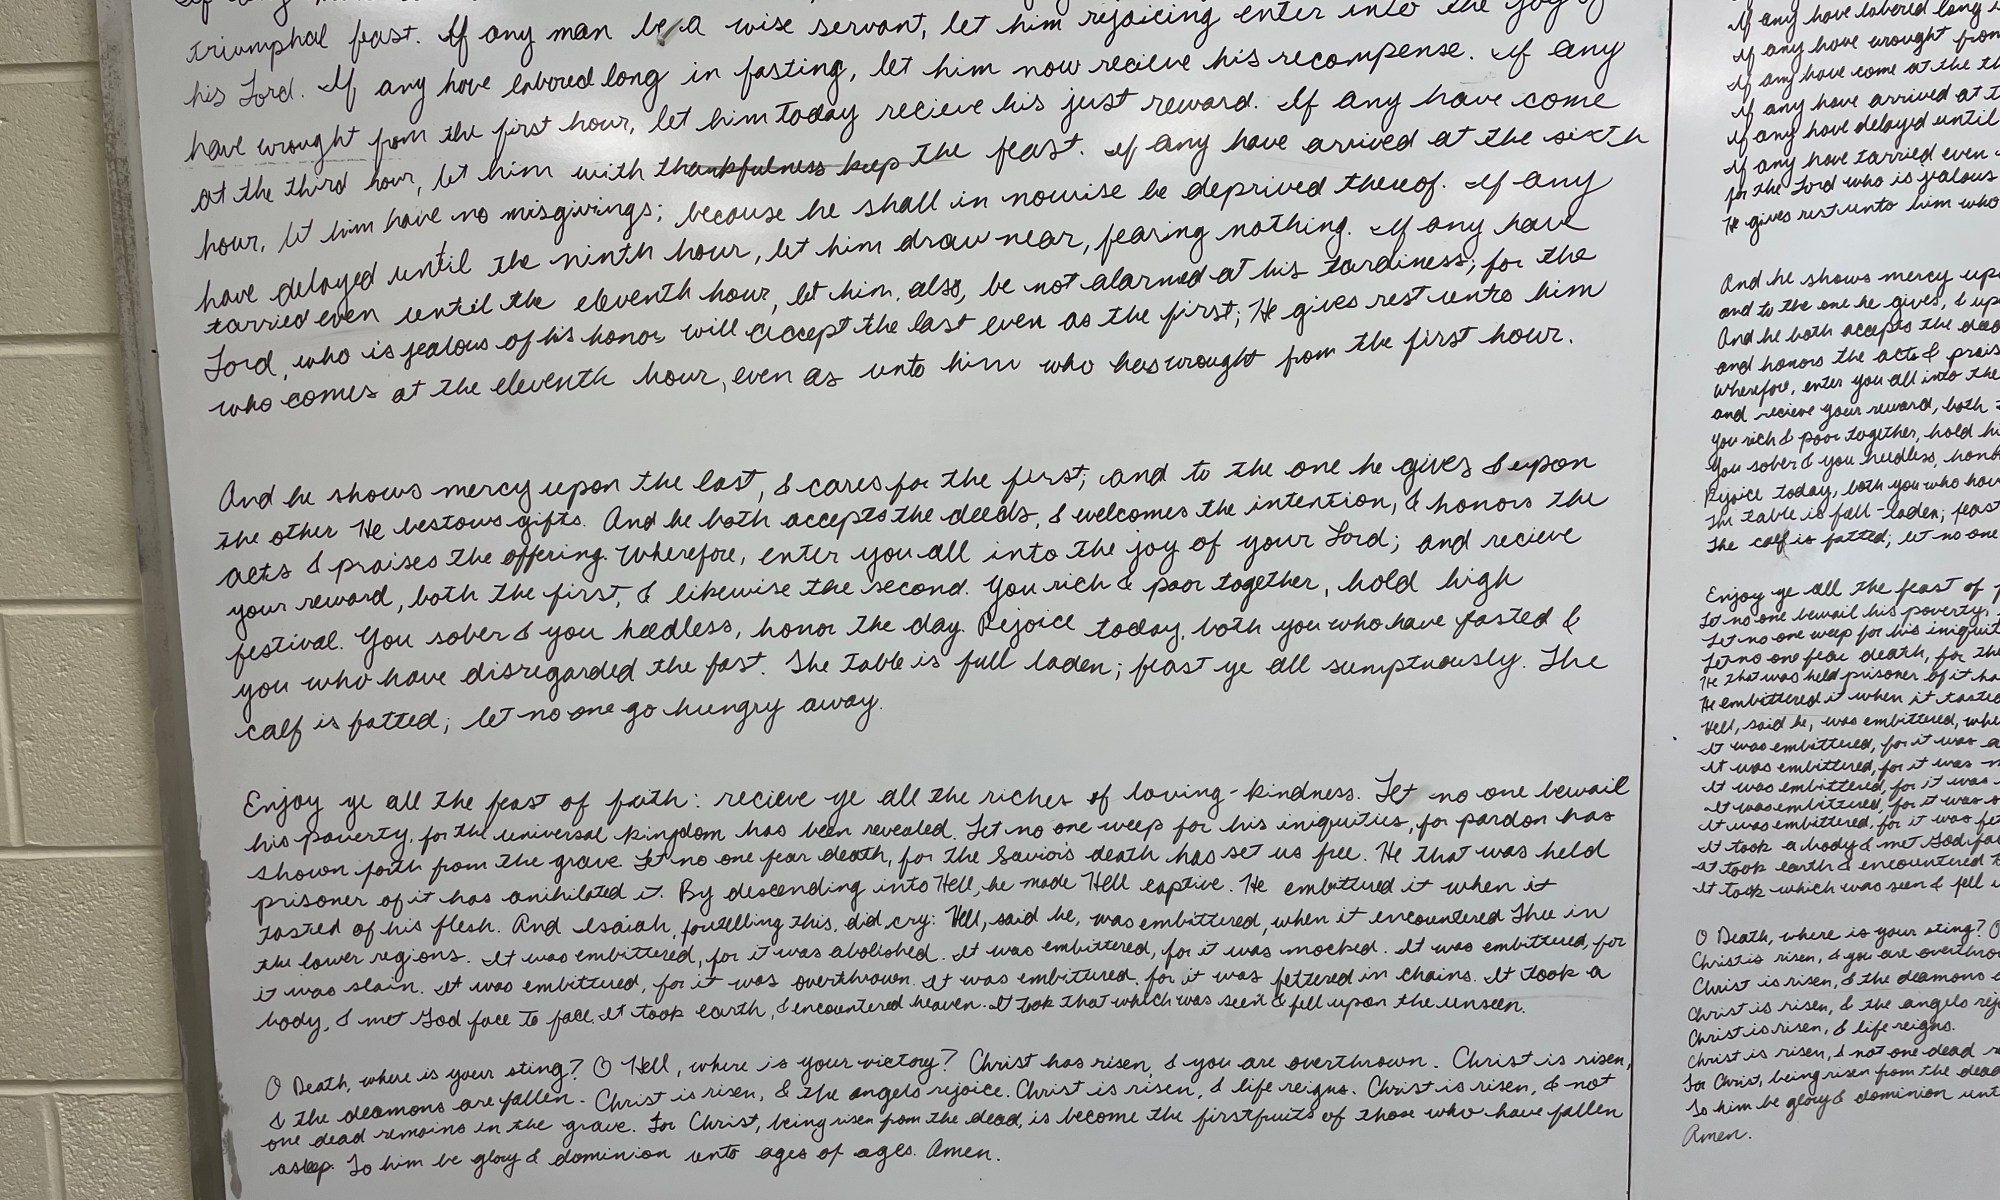 triumphal feast. If any man be a wise servant, let him rejoicing enter into the joy of
his Lord. If any have labored long in fasting, let him now recieve his recompense. If any
have wrought from the first hour, let him today recieve his just reward. If any have come
at the third hour, let him with thankfulness keep the feast. If any have arrived at the sixth
hour, let him have no misgivings; because he shall in nowise be deprived thereof. If any
have delayed until the ninth hour, let him draw near, fearing nothing. If any have
tarried even until the eleventh hour, let him, also, be not alarmed at his tardiness; for the
Lord, who is jealous of his honor, will accept the last even as the first; He gives rest unto him
who comes at the eleventh hour, even as unto him who has wrought from the first hour.
And he shows mercy upon the last, & cares for the first; and to the one he gives & upon
the other He bestows gifts. And he both accepts the deeds, & welcomes the intention, & honors the
acts & praises the offering. Wherefore, enter you all into the joy of your Lord; and recieve
your reward, both the first, & likewise the second. You rich & poor together, hold high
festival. You sober & you heedless, honor the day. Rejoice today, both you who have fasted &
you who have disregarded the fast. The table is full laden; feast ye all sumptuously. The
calf is fatted; let no one go hungry away.
Enjoy ye all the feast of faith: recieve ye all the riches of loving-kindness. Let no one bewail
his poverty, for the universal kingdom has been revealed. Let no one weep for his iniquities, for pardon has
shown forth from the grave. Let no one fear death, for the Savior's death has set us free. He that was held
prisoner of it has anihilated it. By descending into Hell, he made Hell captive. He embittured it when it
tasted of his flesh. And Isaiah, foretelling this, did cry: Hell, said he, was embittured, when it encountered Thee in
the lower regions. It was embittured, for it was abolished. It was embittured, for it was mocked. It was embittured, for
it was slain. It was embittured, for it was overthrown. It was embittured, for it was fettered in chains. It took a
body, & met God face to face. It took earth, & encountered heaven. It took that which was seen & fell upon the unseen.
O Death, where is your sting? O Hell, where is your victory? Christ has risen, & you are overthrown. Christ is risen,
& the deamons are fallen. Christ is risen, & the angels rejoice. Christ is risen, & life reigns. Christ is risen, & not
one dead remains in the grave. For Christ, being risen from the dead, is become the firstfruits of those who have fallen
asleep. To him be glory & dominion unto ages of ages. Amen.
If any have labored long
If any have wrought from
If any have come at the
If any have arrived at
If any have delayed until
If any have tarried even
for the Lord who is jealous
He gives rest unto him who
And he shows mercy
and to the one he gives, &
And he both accepts the
and honors the acts &
Wherefore, enter you all into the
and recieve your reward, both
You rich & poor together, hold
You sober & you heedless,
Rejoice today, both you who
The table is full-laden; feast
The calf is fatted; let no one
Enjoy ye all the feast of
Let no one bewail his poverty,
Let no one weep for his
Let no one fear death, for
He that was held prisoner of it
He embittured it when it
Hell, said he, was embittured,
It was embittured, for it was
It was embittured, for it was
It was embittured, for it was
It was embittured, for it was
It was embittured, for it was
It took a body & met God
It took earth & encountered
It took which was seen & fell
O Death, where is your sting?
Christ is risen, & you are
Christ is risen, & the deamons
Christ is risen, & the angels
Christ is risen, & life reigns.
Christ is risen, & not one dead
For Christ, being risen from the dead
To him be glory & dominion
Amen.